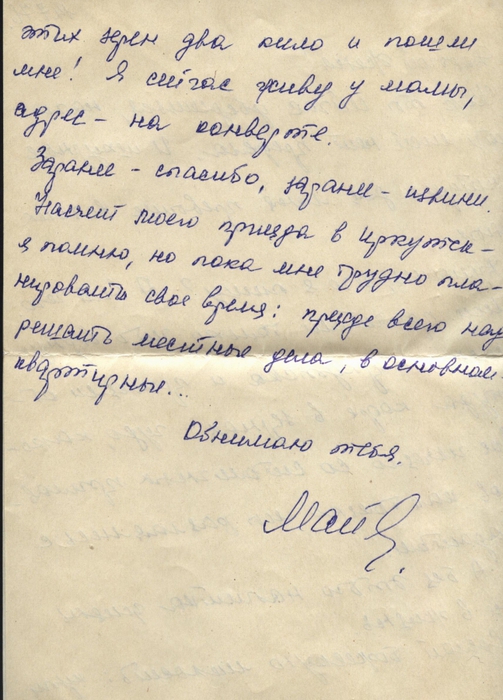 этих зёрен два кило и пошли
мне! Я сейчас живу у мамы,
адрес - на конверте.
Заранее - спасибо, заранее - извини.
Насчет моего приезда в Иркутск -
я помню, но пока мне трудно пла-
нировать свое время: прежде всего над
решать местные дела, в основном -
квартирные...
Обнимаю тебя.
Майя